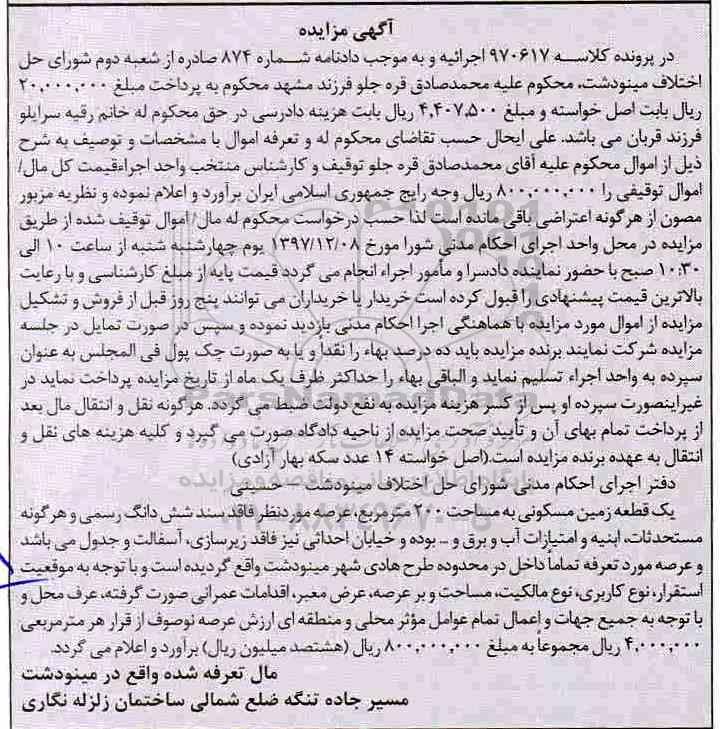 آگهی مزایده
در پرونده کلاسه ۹۷۰۶۱۷ اجرائیه و به موجب دادنامه شماره ۸۷۴ صادره از شعبه دوم شورای حل
اختلاف مینودشت، محکوم علیه محمدصادق قره جلو فرزند مشهد محکوم به پرداخت مبلغ ۲۰,۰۰۰,۰۰۰
ریال بابت اصل خواسته و مبلغ ۴,۴۰۷,۵۰۰ ریال بابت هزینه دادرسی در حق محکوم له خانم رقیه سرایلو
فرزند قربان می باشد. علی ایحال حسب تقاضای محکوم له و تعرفه اموال با مشخصات و توصیف به شرح
ذیل از اموال محکوم علیه آقای محمدصادق قره جلو توقیف و کارشناس منتخب واحد اجراءقیمت کل مال/
اموال توقیفی را ۸۰۰,۰۰۰,۰۰۰ ریال وجه رایج جمهوری اسلامی ایران برآورد و اعلام نموده و نظریه مزبور
مصون از هرگونه اعتراضی باقی مانده است لذا حسب درخواست محکوم له مال/ اموال توقیف شده از طریق
مزایده در محل واحد اجرای احکام مدنی شورا مورخ ۱۳۹۷/۱۲/۰۸ یوم چهارشنبه شنبه از ساعت ۱۰ الی
۱۰:۳۰ صبح با حضور نماینده دادسرا و مأمور اجراء انجام می گردد قیمت پایه از مبلغ کارشناسی و با رعایت
بالاترین قیمت پیشنهادی را قبول کرده است خریدار یا خریداران می توانند پنج روز قبل از فروش و تشکیل
مزایده از اموال مورد مزایده با هماهنگی اجرا احکام مدنی بازدید نموده و سپس در صورت تمایل در جلسه
مزایده شرکت نمایند برنده مزایده باید ده درصد بهاء را نقداً و یا به صورت چک پول فی المجلس به عنوان
سپرده به واحد اجراء تسلیم نماید و الباقی بهاء را حداکثر ظرف یک ماه از تاریخ مزایده پرداخت نماید در
غیراینصورت سپرده او پس از کسر هزینه مزایده به نفع دولت ضبط می گردد. هرگونه نقل و انتقال مال بعد
از پرداخت تمام بهای آن و تأیید صحت مزایده از ناحیه دادگاه صورت می گیرد و کلیه هزینه های نقل و
انتقال به عهده برنده مزایده است.(اصل خواسته ۱۴ عدد سکه بهار آزادی)
دفتر اجرای احکام مدنی شورای حل اختلاف مینودشت – حسینی
یک قطعه زمین مسکونی به مساحت ۲۰۰ مترمربع، عرصه موردنظر فاقد سند شش دانگ رسمی و هرگونه
مستحدثات، ابنیه و امتیازات آب و برق و ... بوده و خیابان احداثی نیز فاقد زیرسازی، آسفالت و جدول می باشد
و عرصه مورد تعرفه تماماً داخل در محدوده طرح هادی شهر مینودشت واقع گردیده است و با توجه به موقعیت
استقرار، نوع کاربری، نوع مالکیت، مساحت و بر عرصه، عرض معبر، اقدامات عمرانی صورت گرفته، عرف محل و
با توجه به جمیع جهات و اعمال تمام عوامل مؤثر محلی و منطقه ای ارزش عرصه نوصوف از قرار هر مترمربعی
۴,۰۰۰,۰۰۰ ریال مجموعاً به مبلغ ۸۰۰,۰۰۰,۰۰۰ ریال (هشتصد میلیون ریال) برآورد و اعلام می گردد.
مال تعرفه شده واقع در مینودشت
مسیر جاده تنگه ضلع شمالی ساختمان زلزله نگاری
ParsNamadData